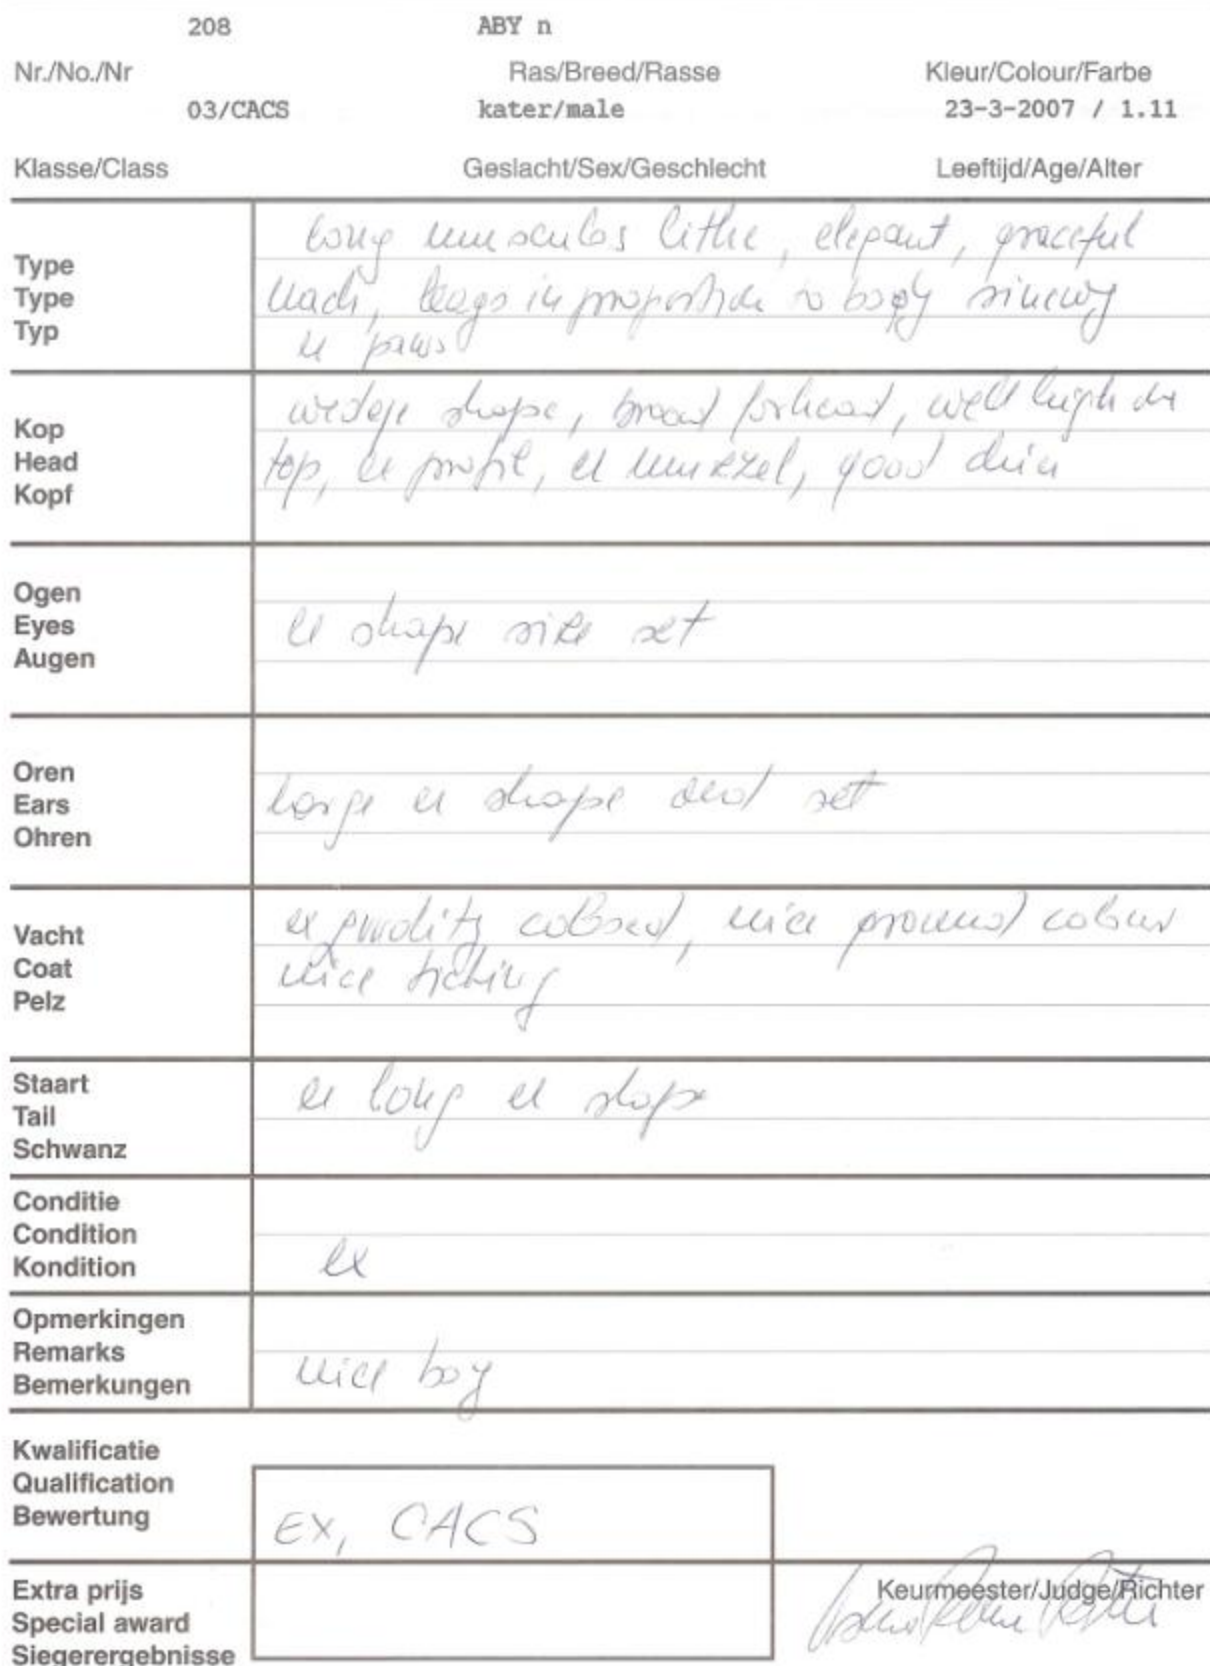 208 ABY n
Nr./No./Nr Ras/Breed/Rasse Kleur/Colour/Farbe
03/CACS kater/male 23-3-2007 / 1.11
Klasse/Class Geslacht/Sex/Geschlecht Leeftijd/Age/Alter
Type
Type
Typ
long lithe, elegant, graceful
in proportion to body sinewy
ex paws
Kop
Head
Kopf
wedge shape, broad forhead, well high on
top, ex profil, ex muzzel, good chin
Ogen
Eyes
Augen
ex shape size set
Oren
Ears
Ohren
large ex shape and set
Vacht
Coat
Pelz
ex nice ground colour
nice ticking
Staart
Tail
Schwanz
ex long ex shape
Conditie
Condition
Kondition
ex
Opmerkingen
Remarks
Bemerkungen
nice boy
Kwalificatie
Qualification
Bewertung
EX, CACS
Extra prijs
Special award
Siegerergebnisse
Keurmeester/Judge/Richter